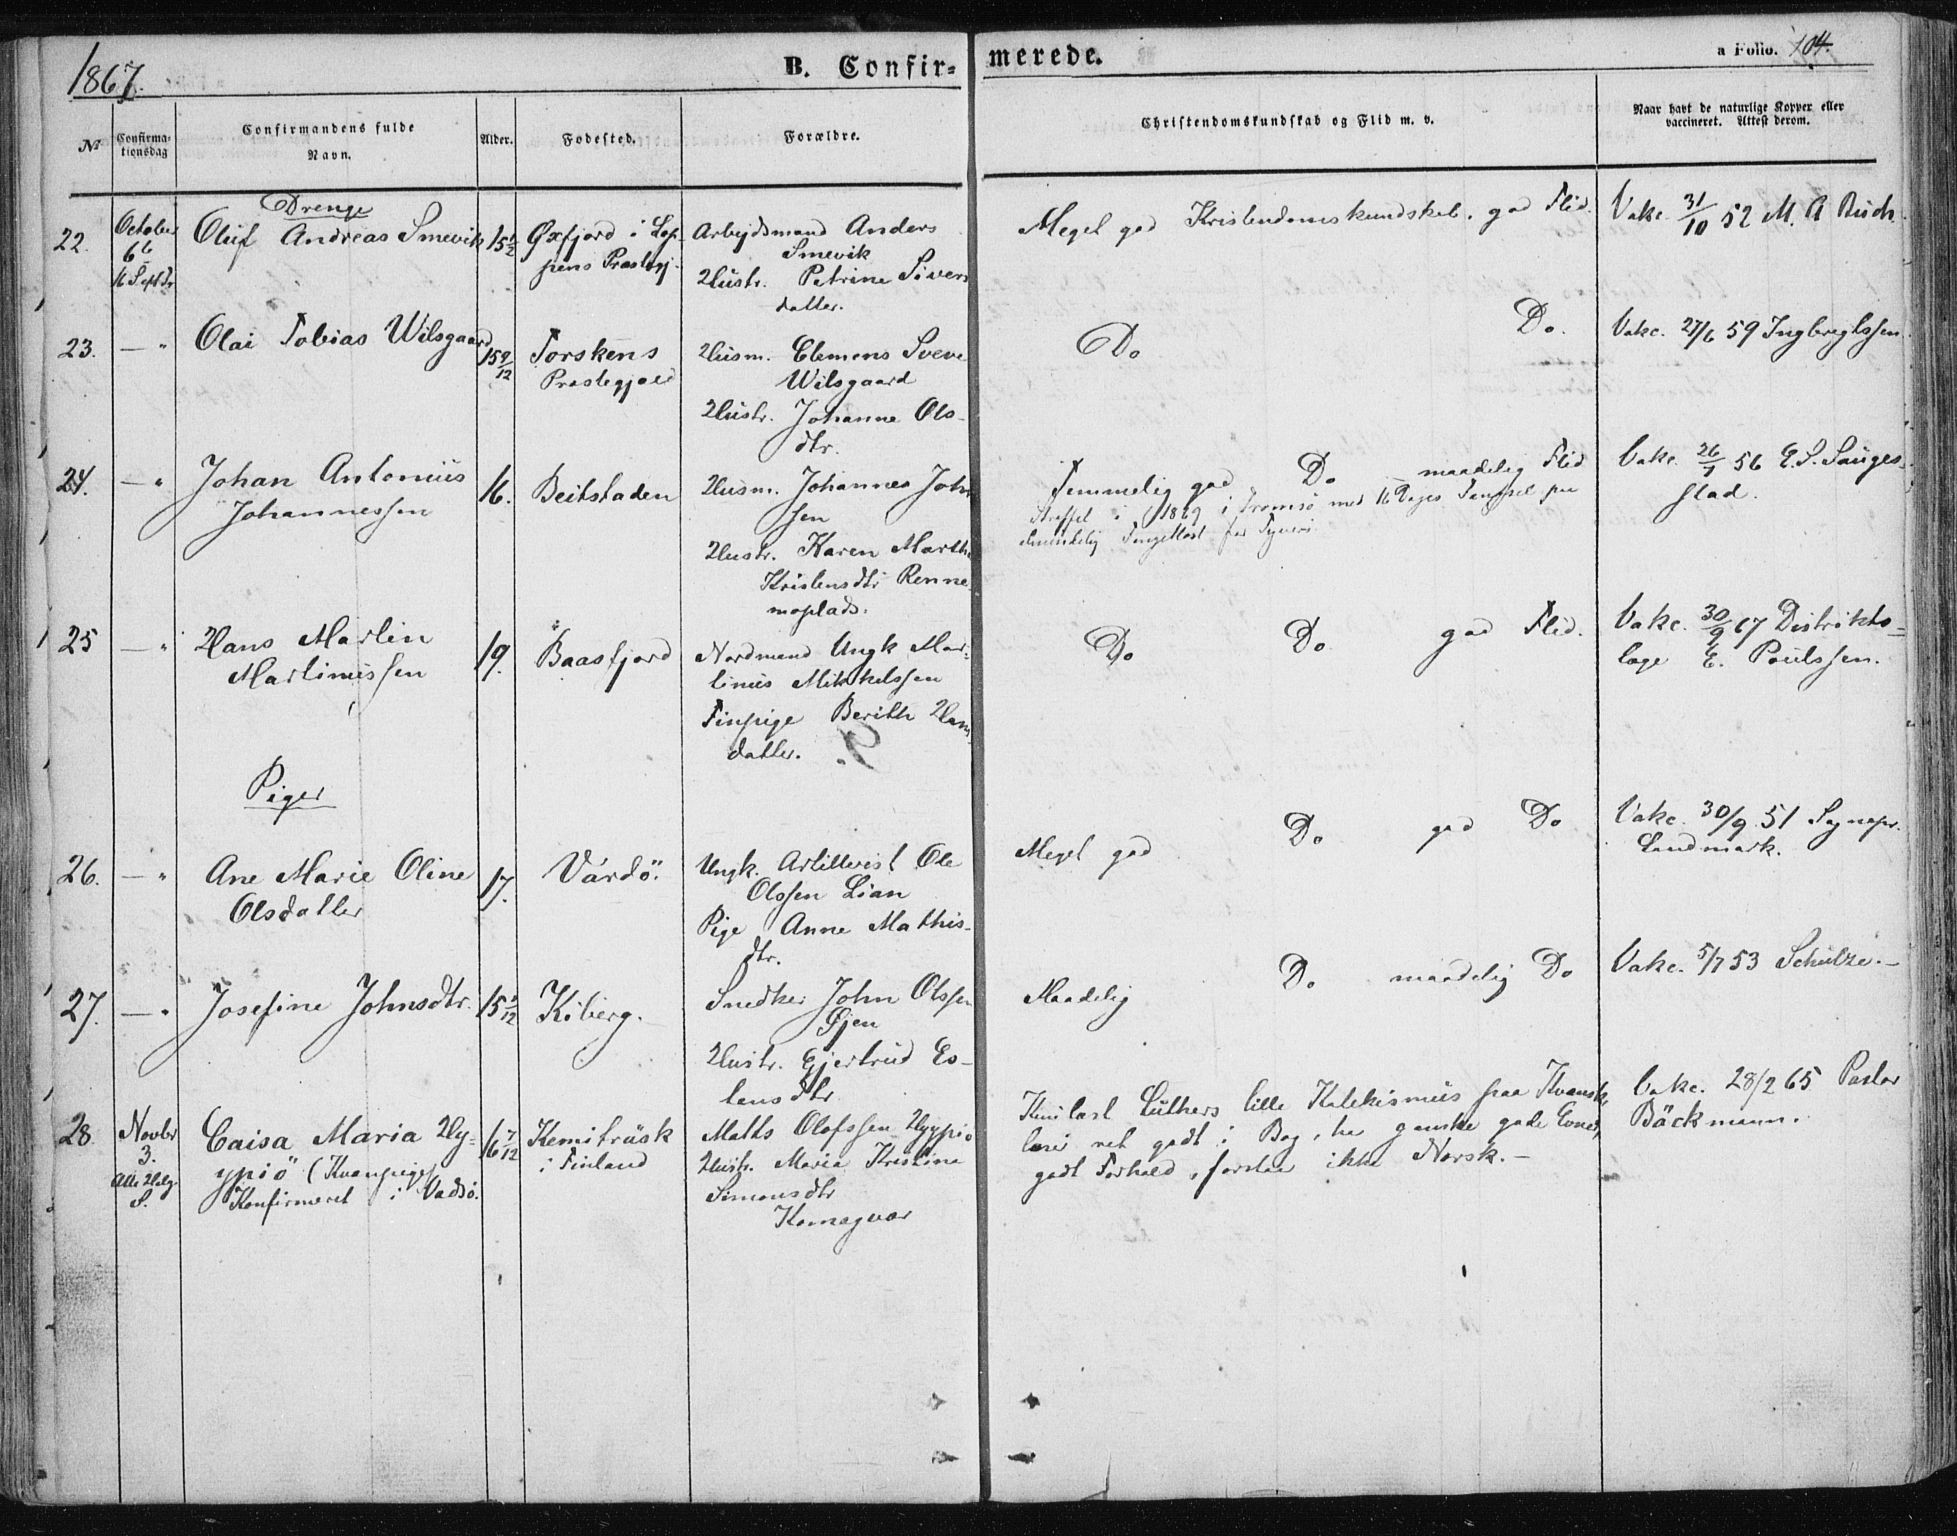 1867.
B. Confir-
merede.
a Folio. 104.
No
Confirma-
tionsdag
Confirmandens fulde
Navn.
Alder.
Fødested.
Forældre.
Christendomskundskab og Flid m. v.
Naar havt de naturlige Kopper eller
vaccineret. Attest derom.
Drenge
22.
October
6te
16 S. eft. Tr.
Oluf Andreas Smevik
15 1/2
Øxfjord i Lop-
pens Præstegj.
Arbejdsmand Anders
Smevik
Hustr. Petrine Sivers
datter.
Meget god Kristendomskundskab. god Flid.
Vakc. 31/10 52 M. A Buch.
23.
— "
Olai Tobias Wilsgaard
15 9/12
Torskens
Præstegjæld
Husm. Clemens Sveve
Wilsgaard
Hustr. Johanne Ols-
dtr.
Do
Do.
Vakc. 27/6 59 Ingbregtssen.
24.
— "
Johan Antonius
Johannessen
16.
Beitstaden
Husm. Johannes John
sen
Hustr. Karen Marthe
Kristensdtr Renne-
moplads.
Temmelig god Do maadelig Flid
Straffet i 1869 i Tromsø med 16 Dages Fængsel paa
almindelig Fangekost for Tyveri.
Vakc. 26/7 56 E. S. Sauges-
stad.
25
— "
Hans Martin
Martinussen
19.
Baasfjord
Nordmand Ungk Mar-
tinus Mikkelssen
Finpige Berith Hans
datter.
Do Do god Flid.
Vakc. 30/9 67 Distrikts-
læge E. Poulssen.
Piger
26.
— "
Ane Marie Oline
Olsdatter
17.
Vardö.
Ungk. Artillerist Ole
Olssen Lian
Pige Anne Mathis-
dtr.
Meget god Do god Do
Vakc. 30/9 51 Sognepr.
Landmark.
27.
— "
Josefine Johnsdtr.
15 /12
Kiberg.
Snedker John Olssen
Øjen
Hustr. Gjertrud Es-
tensdtr
Maadelig Do maadelig Do
Vakc. 5/7 53 Schulze. —
28
Novbr
3.
Alle Helg.
S.
Caisa Maria Hy-
ypiö (Kvænpige)
Konfirmeret i Vadsö.
16 7/12
Kemiträsk
i Finland
Matts Olofssen Hyypiö
Hustr. Maria Kristina
Simonsdtr
Komagvær
Kun læst Luthers lille Katekismus paa Kvænsk,
læser ret godt i Bog, har ganske gode Evner,
godt Forhold, forstaar ikke Norsk. —
Vakc. 28/2 65 Pastor
Bäckmann.